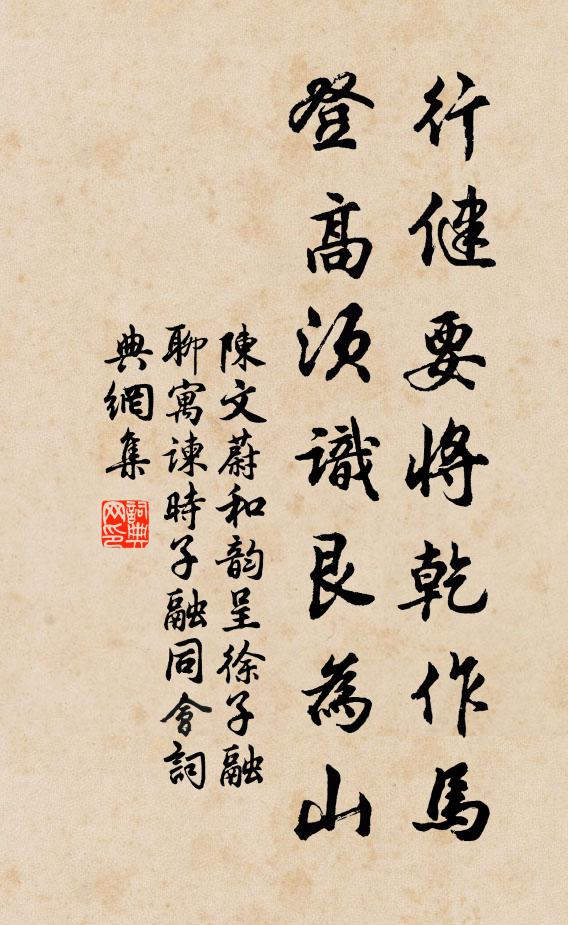 行健要將乾作馬
登高須識艮為山
陳文蔚和韵呈徐子融
聊寓諫時子融同會詞
典網集
詞典
网印